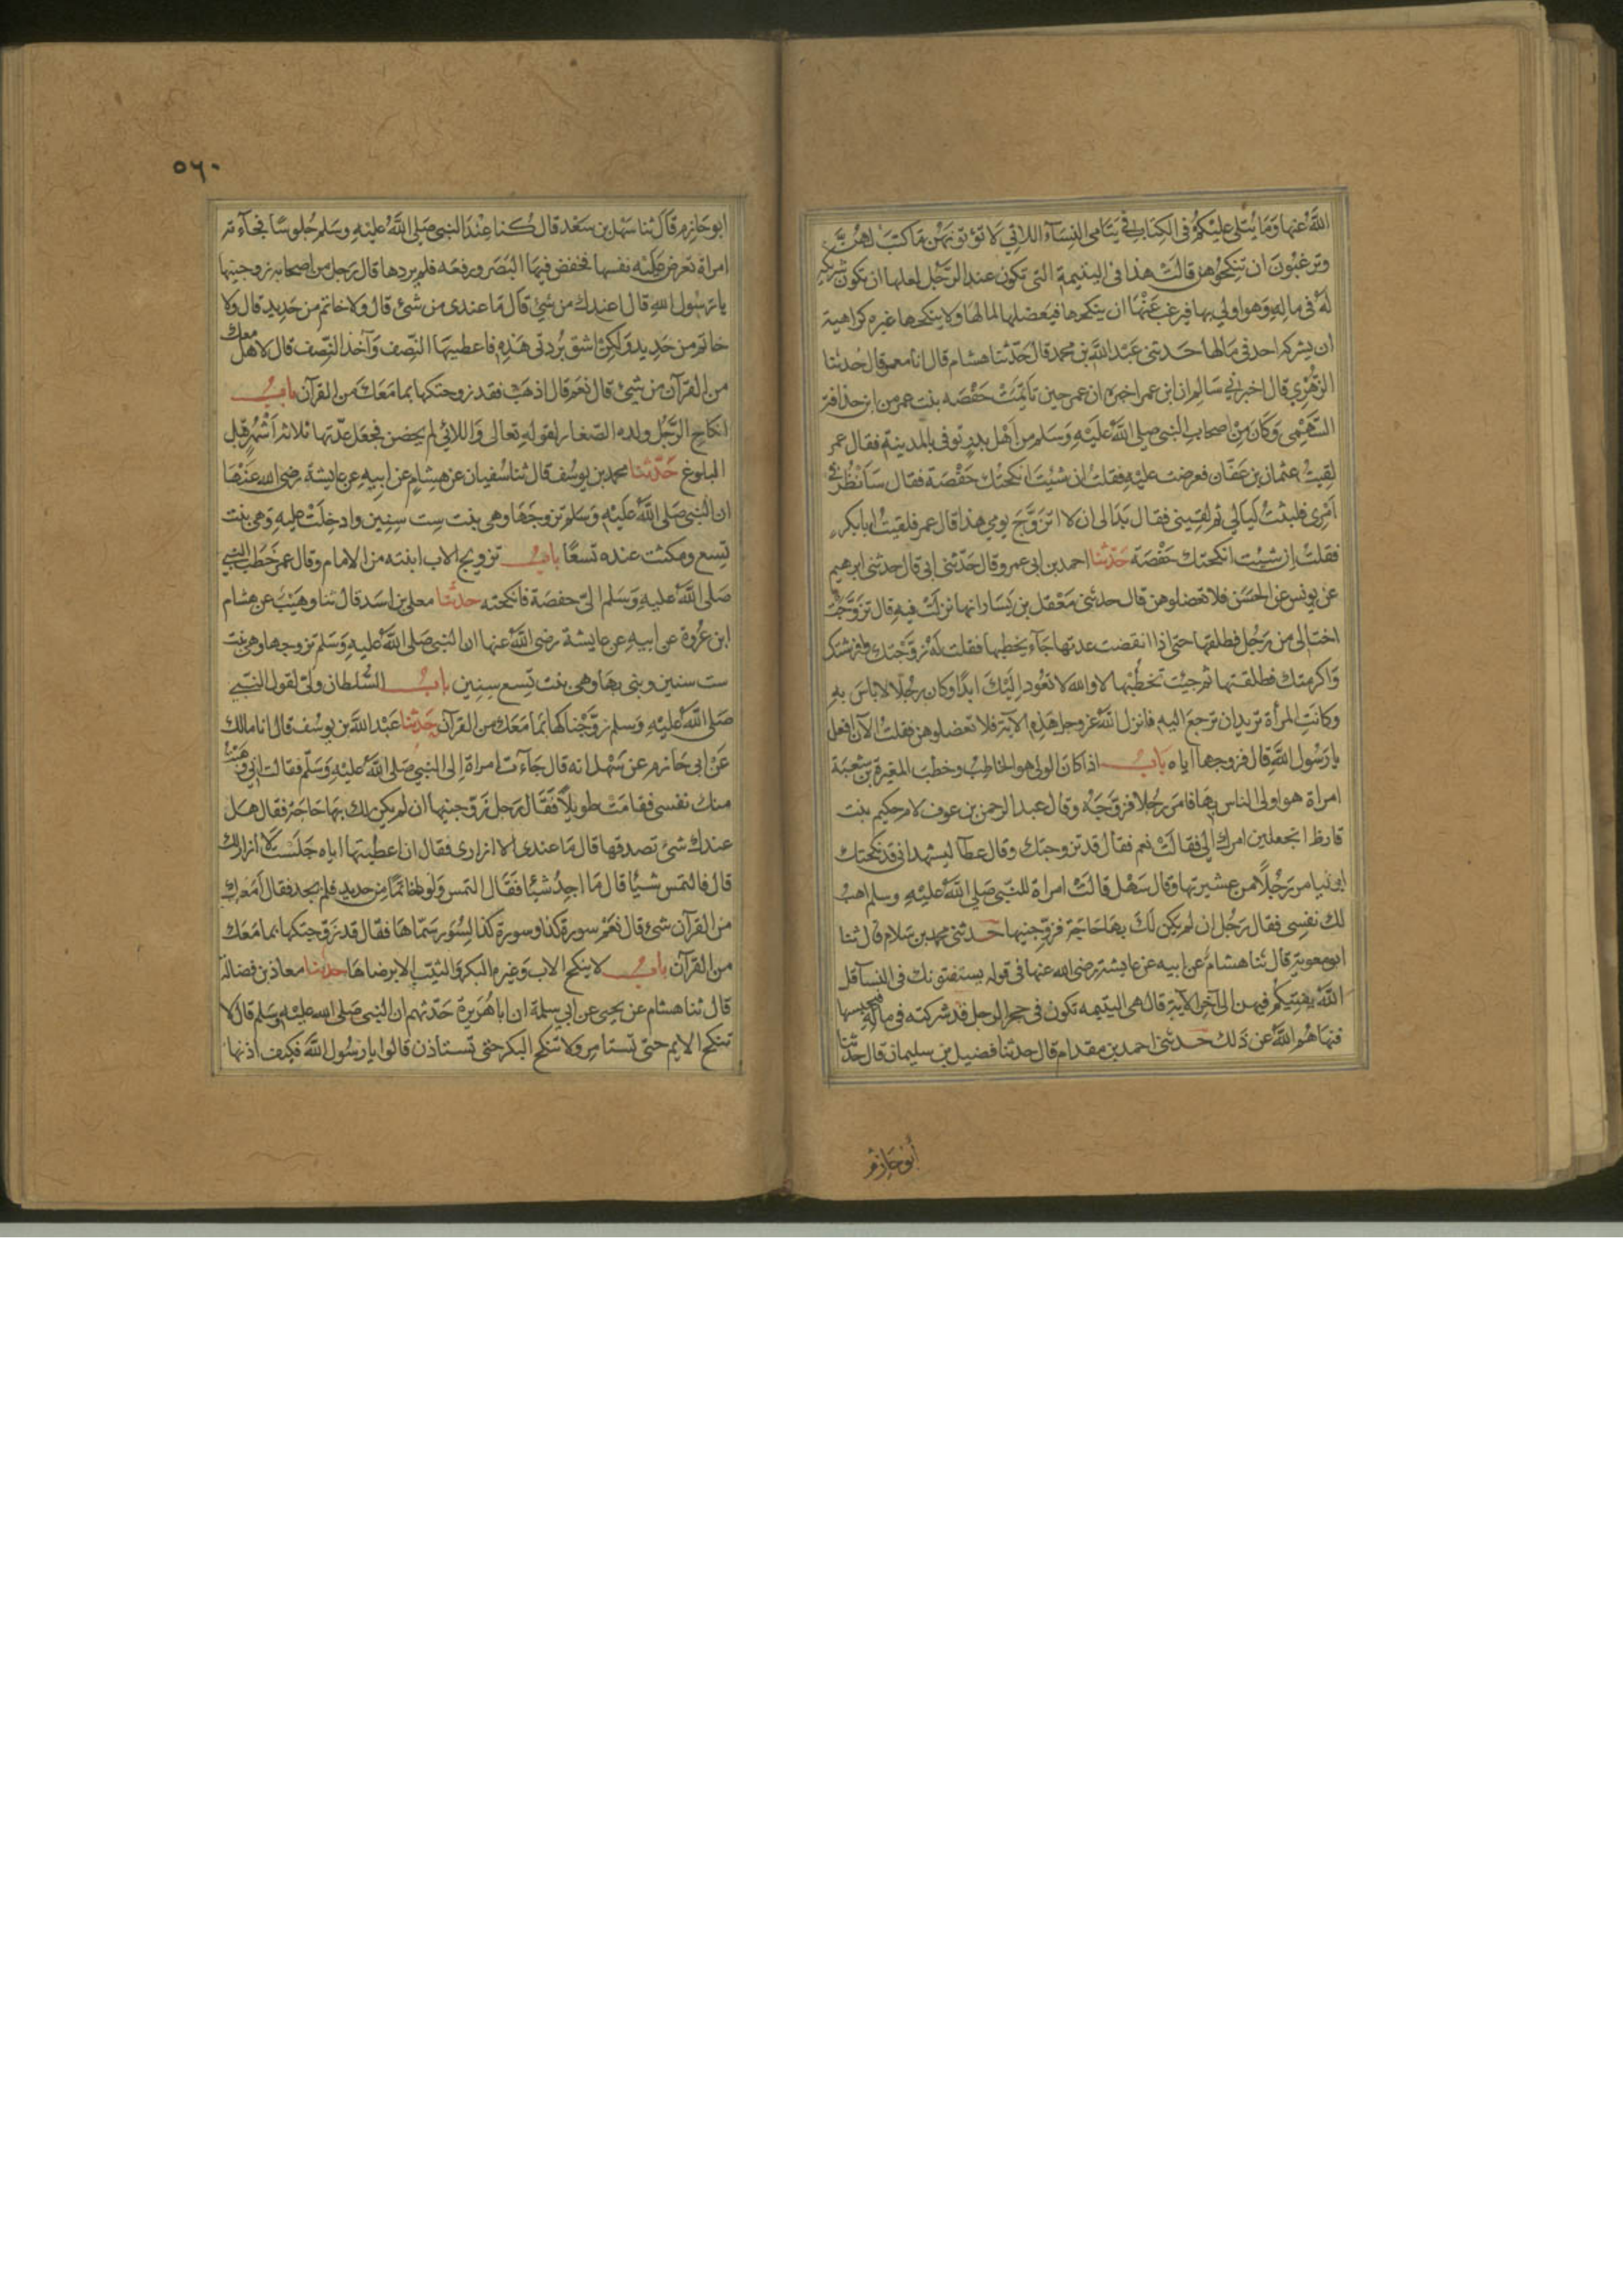 الله عنها وما يتلى عليكم في الكتاب في يتامى النساء اللاتي لا تؤتونهن ما كتب لهن
وترغبون ان تنكحوهن قالت هذا في اليتيمة التي تكون عند الرجل لعلها ان تكون شريكته
له في ماله وهو اولى بها فيرغب عنها ان ينكحها فيعضلها لمالها ولا ينكحها غيره كراهية
ان يشركه احد في مالها حدثني عبد الله بن محمد قال حدثنا هشام قال انا معمر قال حدثنا
الزهري قال اخبرني سالم ان ابن عمر اخبره ان عمر حين تايمت حفصه بنت عمر من ابن حذافة
السهمي وكان من اصحاب النبي صلى الله عليه وسلم من اهل بدر توفي بالمدينة فقال عمر
لقيت عثمان بن عفان فعرضت عليه فقلت ان شئت انكحتك حفصة فقال سانظر في
امري فلبثت ليالي ثم لقيني فقال بدا لي ان لا اتزوج يومي هذا قال عمر فلقيت ابا بكر
فقلت ان شئت انكحتك حفصة حدثنا احمد بن ابي عمرو قال حدثني ابي قال حدثني ابرهيم
عن يونس عن الحسن فلا تعضلوهن قال حدثني معقل بن يسار انها نزلت فيه قال تزوجت
اختا لي من رجل فطلقها حتى اذا انقضت عدتها جاء يخطبها فقلت له زوجتك وفرشتك
واكرمتك فطلقتها ثم جيت تخطبها لا والله لا تعود اليك ابدا وكان رجلا لا باس به
وكانت المرأة تريد ان ترجع اليه فانزل الله عز وجل هذه الآية فلا تعضلوهن فقلت الآن افعل
يا رسول الله قال فزوجها اياه باب اذا كان الولي هو الخاطب وخطب المغيرة بن شعبة
امراة هو اولى الناس بها فامر رجلا فزوجه وقال عبد الرحمن بن عوف لام حكيم بنت
قارظ اتجعلين امرك الي فقالت نعم فقال قد تزوجتك وقال عطآ ليشهد اني قد نكحتك
او ليامر رجلا من عشيرتها وقال سهل قالت امراة للنبي صلى الله عليه وسلم اهب
لك نفسي فقال رجل ان لم يكن لك بها حاجة فزوجنيها حدثني محمد بن سلام قال ثنا
ابو معوية قال ثنا هشام عن ابيه عن عايشة رضي الله عنها في قوله يستفتونك في النسآ قل
الله يفتيكم فيهن الى آخر الآية قال هي اليتيمه تكون في حجر الرجل قد شركته في ماله فيحبسها
فنهاهم الله عن ذلك حدثني احمد بن مقدام قال حدثنا فضيل بن سليمان قال حدثنا
ابو حازم
٥٦٠
ابو حازم قال ثنا سهل بن سعد قال كنا عند النبي صلى الله عليه وسلم جلوسا فجآءته
امراة تعرض عليه نفسها فخفض فيها البصر ورفعه فلم يردها قال رجل من اصحابه زوجنيها
يا رسول الله قال اعندك من شئ قال ما عندي من شئ قال ولا خاتم من حديد قال ولا
خاتم من حديد ولكن اشق بردتي هذه فاعطيها النصف وآخذ النصف قال لا هل معك
من القرآن من شئ قال نعم قال اذهب فقد زوجتكها بما معك من القرآن باب
انكاح الرجل ولده الصغار لقوله تعالى واللائي لم يحضن فجعل عدتها ثلاثة اشهر قبل
البلوغ حدثنا محمد بن يوسف قال ثنا سفيان عن هشام عن ابيه عن عايشة رضي الله عنها
ان النبي صلى الله عليه وسلم تزوجها وهي بنت ست سنين وادخلت عليه وهي بنت
تسع ومكثت عنده تسعا باب تزويج الاب ابنته من الامام وقال عمر خطب النبي
صلى الله عليه وسلم الي حفصة فانكحته حدثنا معلى بن اسد قال ثنا وهيب عن هشام
ابن عروة عن ابيه عن عايشة رضي الله عنها ان النبي صلى الله عليه وسلم تزوجها وهي بنت
ست سنين وبنى بها وهي بنت تسع سنين باب السلطان ولي لقول النبي
صلى الله عليه وسلم زوجناكها بما معك من القرآن حدثنا عبد الله بن يوسف قال انا مالك
عن ابي حازم عن سهل انه قال جآءت امراة الى النبي صلى الله عليه وسلم فقالت اني وهبت
منك نفسي فقامت طويلا فقال رجل زوجنيها ان لم يكن لك بها حاجة فقال هل
عندك شئ تصدقها قال ما عندي الا ازاري فقال ان اعطيتها اياه جلست لا ازار لك
قال فالتمس شيئا قال ما اجد شيئا فقال التمس ولو خاتما من حديد فلم يجد فقال امعك
من القرآن شئ قال نعم سورة كذا وسورة كذا لسور سماها فقال قد زوجتكها بما معك
من القرآن باب لا ينكح الاب وغيره البكر والثيب الا برضاها حدثنا معاذ بن فضالة
قال ثنا هشام عن يحيى عن ابي سلمة ان ابا هريرة حدثهم ان النبي صلى الله عليه وسلم قال لا
تنكح الايم حتى تستامر ولا تنكح البكر حتى تستاذن قالوا يا رسول الله فكيف اذنها